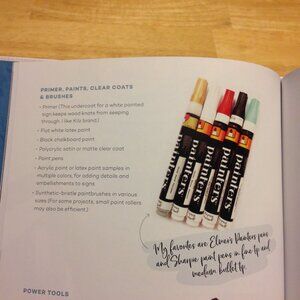 PRIMER, PAINTS, CLEAR COATS
& BRUSHES
- Primer (This undercoat for a white painted
sign keeps wood knots from seeping
through. I like Kilz brand.)
- Flat white latex paint
- Black chalkboard paint
- Polycrylic satin or matte clear coat
- Paint pens
- Acrylic paint or latex paint samples in
multiple colors, for adding details and
embellishments to signs
- Synthetic-bristle paintbrushes in various
sizes (For some projects, small paint rollers
may also be efficient.)
painters
painters
painters
painters
painters
My favorites are Elmer's Painters pens
and Sharpie paint pens in fine tip and
medium bullet tip.
POWER TOOLS